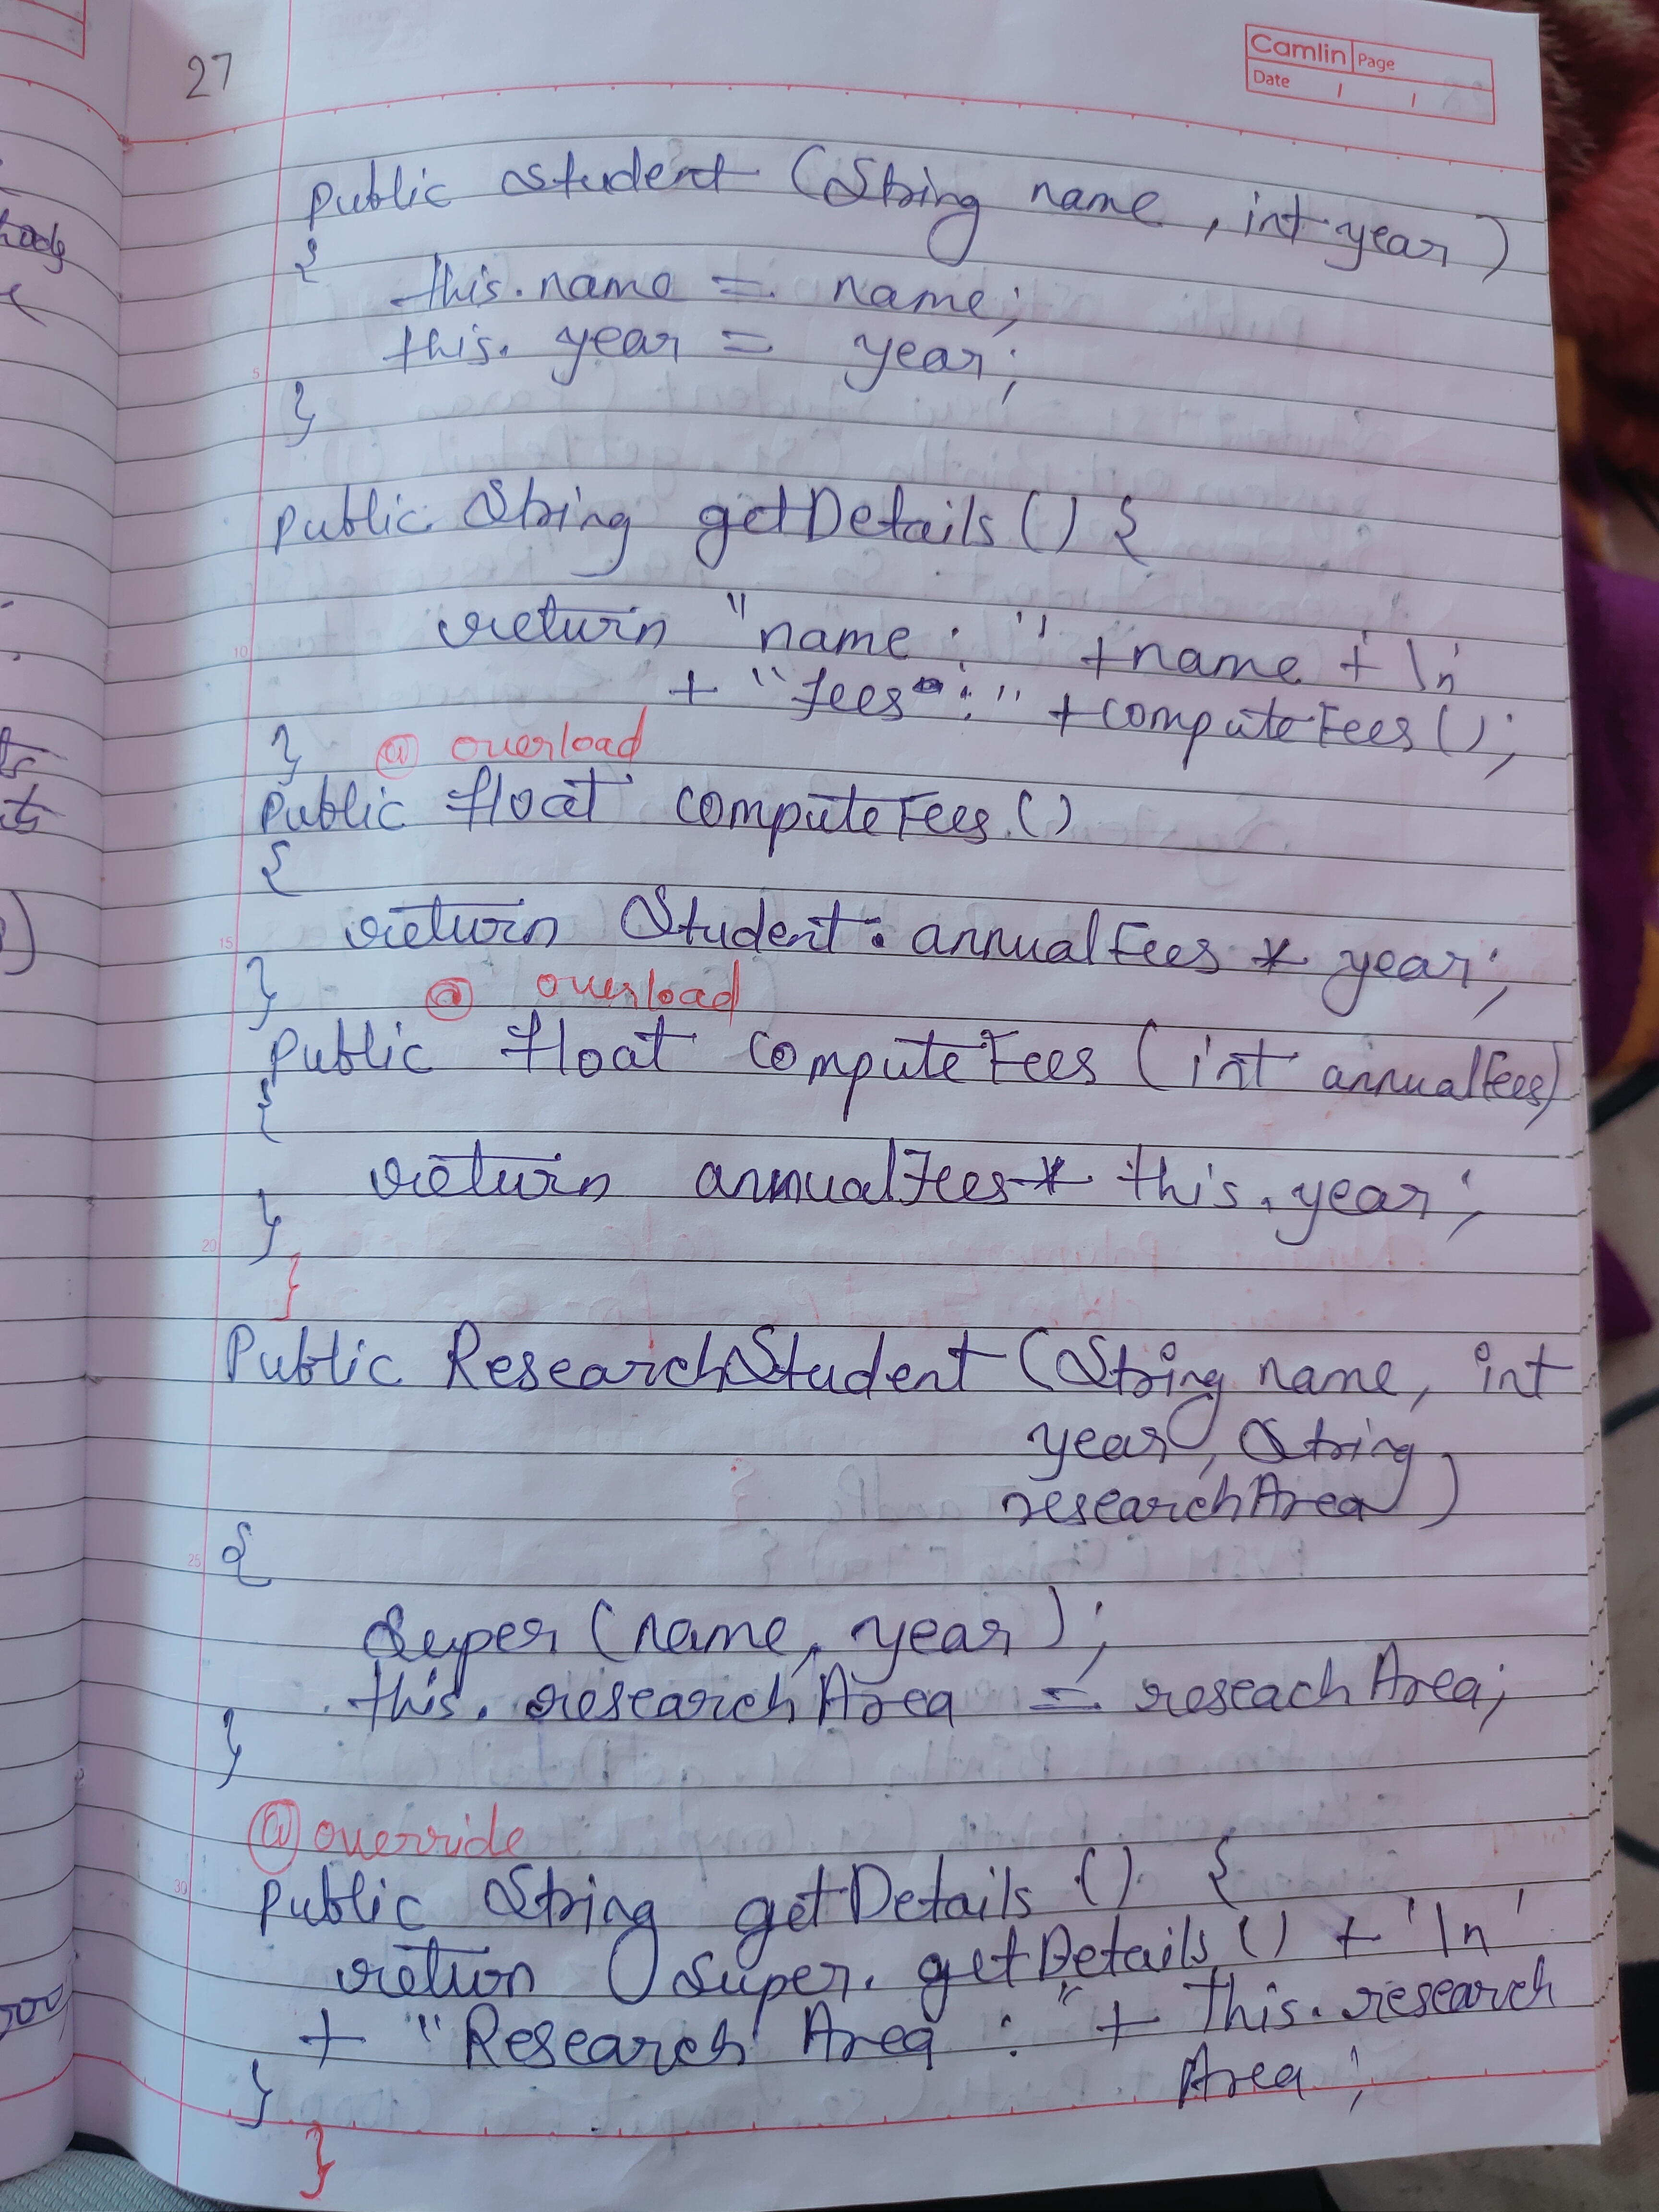 27
Camlin Page
Date / /
public student (String name, int year)
{
this.name = name;
this.year = year;
}
public String getDetails () {
return "name : " + name + \n
+ "fees : " + computeFees ();
} @ overload
public float computeFees ()
{
return Student. annualFees * year;
} @ overload
public float computeFees (int annualFees)
{
return annualFees * this.year;
}
}
Public ResearchStudent (String name, int
year, String
researchArea)
{
super (name, year);
this. researchArea = reseachArea;
}
@override
public String getDetails () {
return super. getDetails () + '\n'
+ "Research Area : " + this.research
Area;
}
}